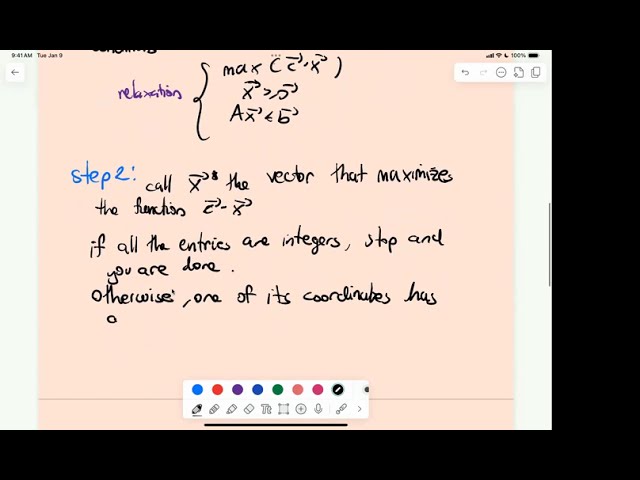 9:41 AM Tue Jan 9
100%
max ( c⃗ · x⃗ )
relaxation
x⃗ ≥ 0⃗
A x⃗ ≤ b⃗
step 2: call x⃗* the vector that maximizes
the function c⃗ · x⃗
if all the entries are integers, stop and
you are done.
otherwise, one of its coordinates has
a